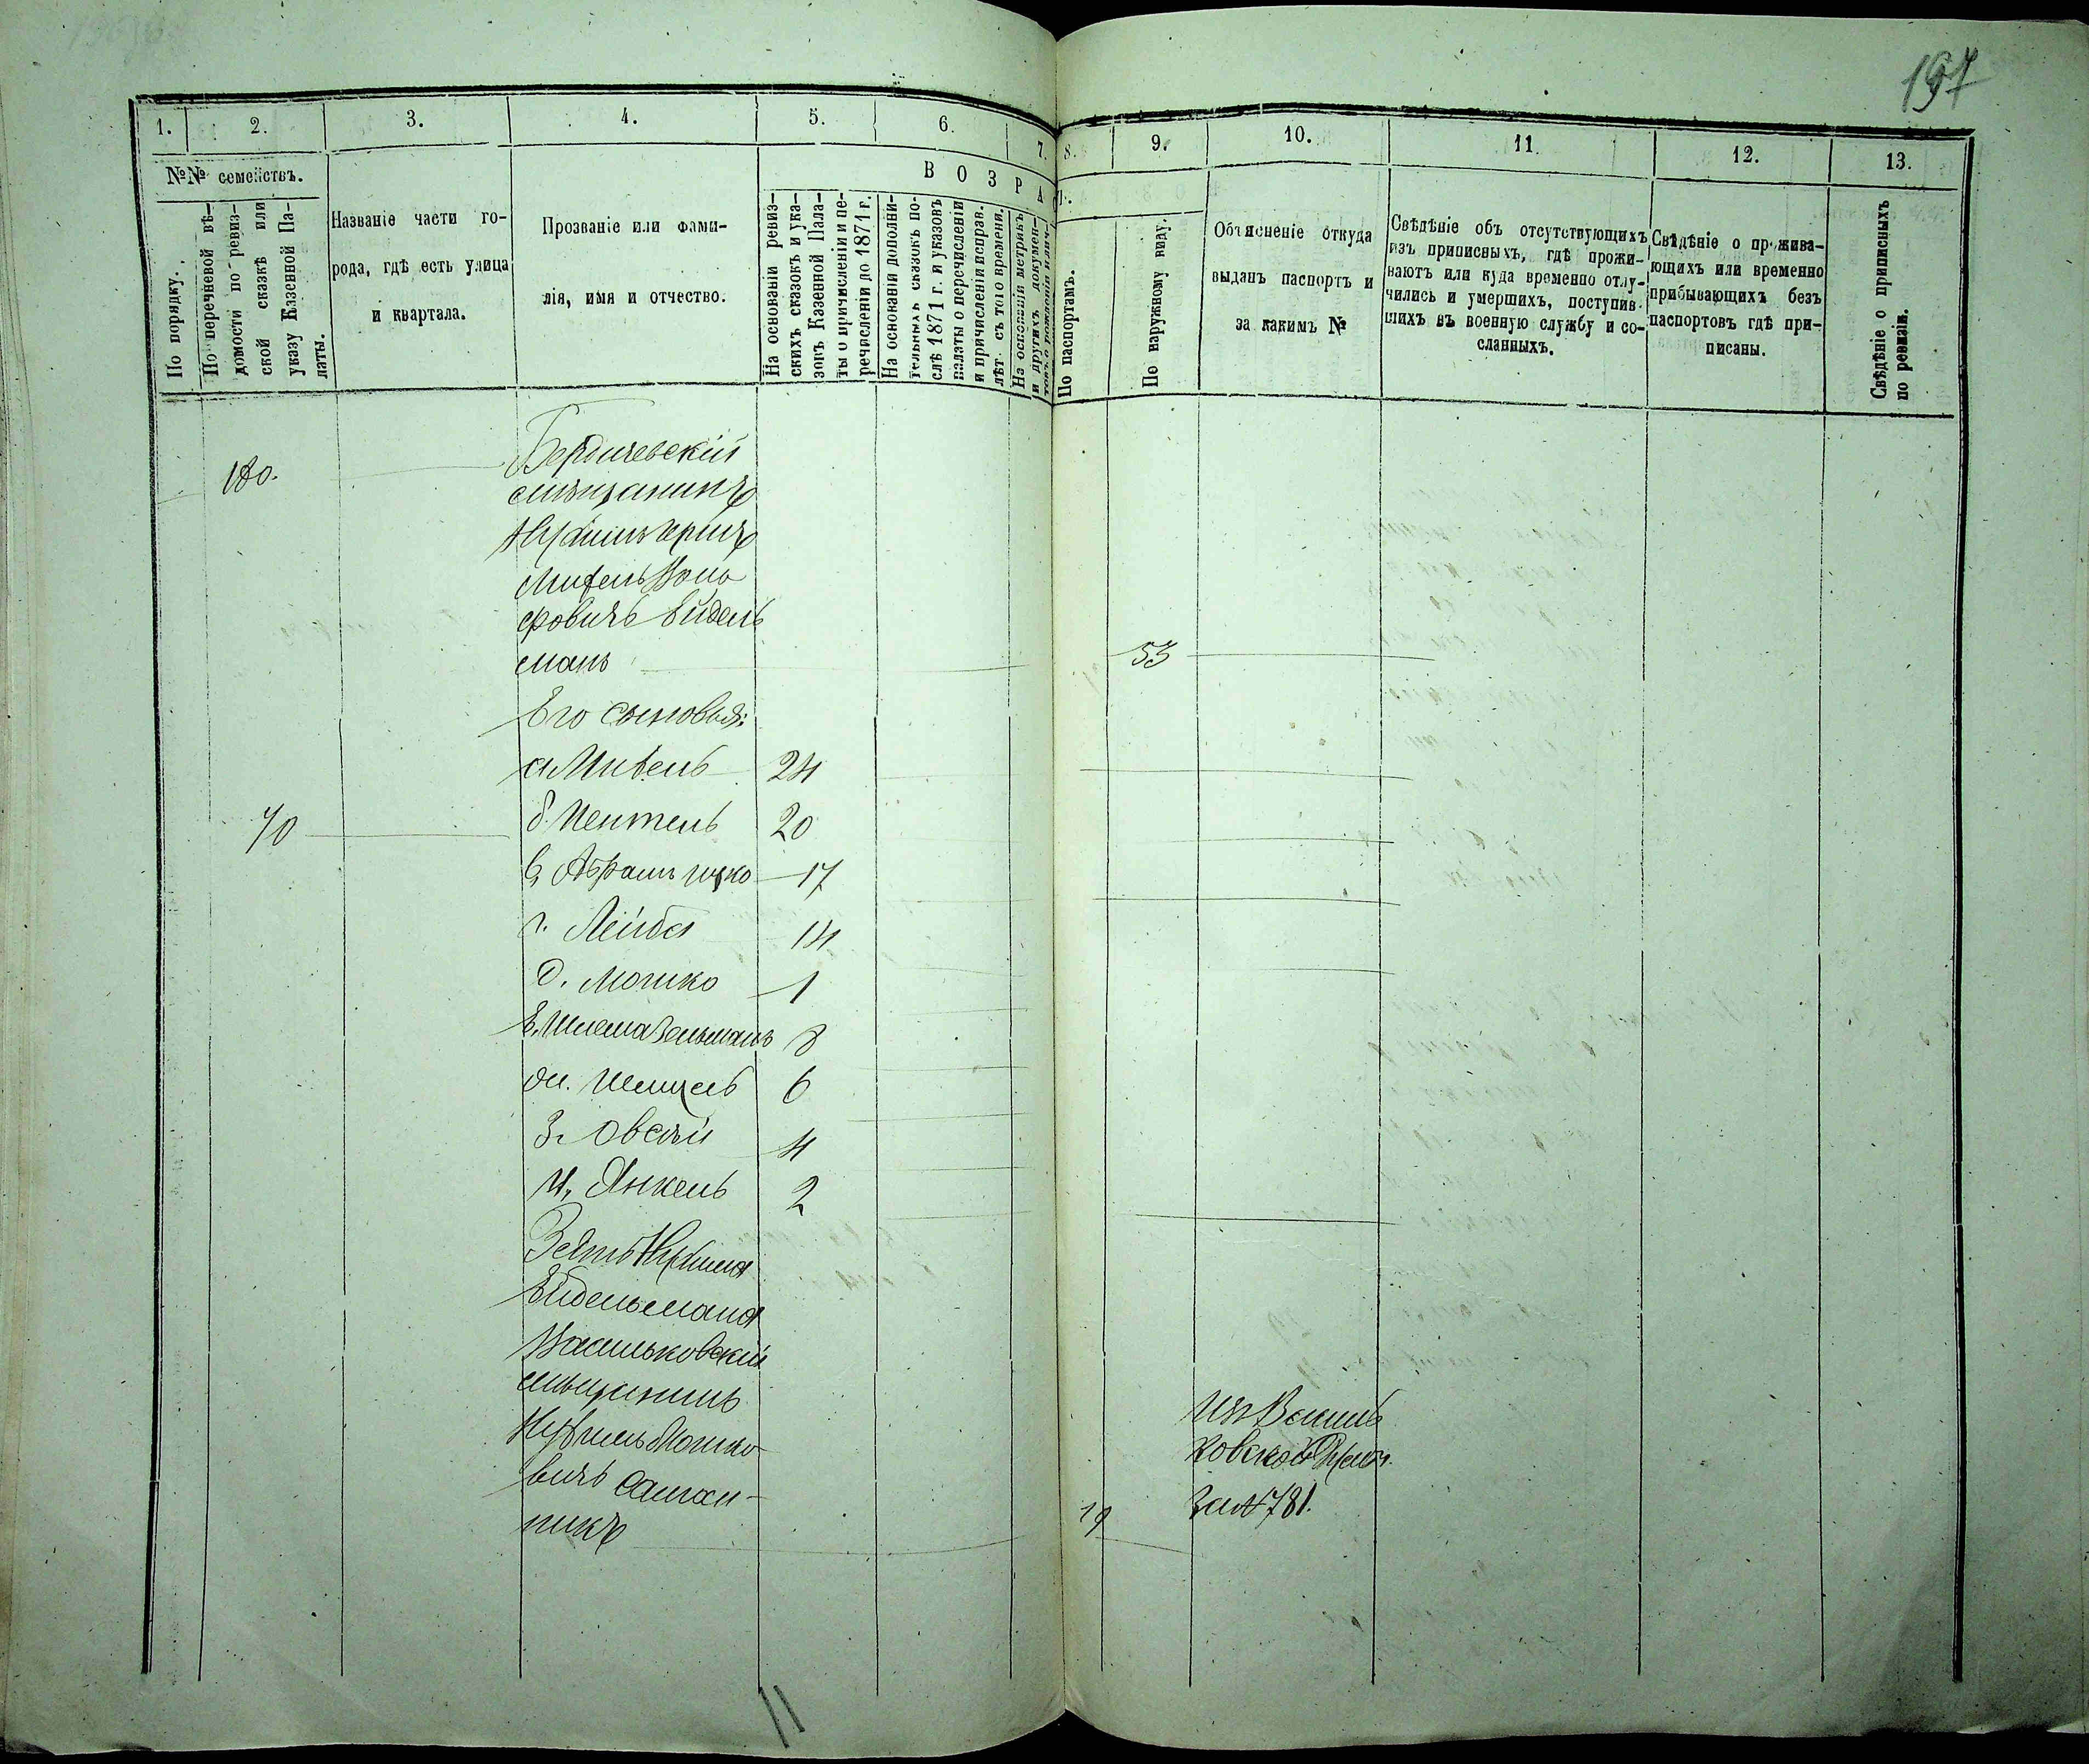 197
1. 2. 3. 4. 5. 6. 7. 8. 9. 10. 11. 12. 13.
№№ семействъ.
По порядку.
По перечневой вѣ-
домости по ревиз-
ской сказкѣ или
указу Казенной Па-
латы.
Названіе части го-
рода, гдѣ есть улица
и квартала.
Прозваніе или фами-
лія, имя и отчество.
ВОЗРА
На основаніи ревиз-
скихъ сказокъ и ука-
зовъ Казенной Пала-
ты о причисленіи и пе-
речисленіи до 1871 г.
На основаніи дополни-
тельныхъ сказокъ по-
слѣ 1871 г. и указовъ
палаты о перечисленіи
и причисленіи исправ.
лѣт. съ того времени.
На основаніи метрикъ
и другихъ докумен-
По паспортамъ.
По наружному виду.
Объясненіе откуда
выданъ паспортъ и
за какимъ №
Свѣдѣніе объ отсутствующихъ
изъ приписныхъ, гдѣ прожи-
ваютъ или куда временно отлу-
чились и умершихъ, поступив-
шихъ въ военную службу и со-
сланныхъ.
Свѣдѣніе о прожива-
ющихъ или временно
прибывающихъ безъ
паспортовъ гдѣ при-
писаны.
Свѣдѣніе о приписныхъ
по ревизіи.
180.
Бердичевскій
мѣщанинъ
сровичъ Эйдель
манъ 53
Его сыновья:
24
70 б. 20
в, Абрамъ Ицко 17
г. Лейба 14
д. Мошко 1
Е, Шлема Зельманъ 8
6
З. Овсѣй 4
И, Янкель 2
Зять
Эйдельмана
Васильковскій
мѣщанинъ
Мошко-
вичъ
никъ 19
Изъ Василь
ковской
за № 781.
11